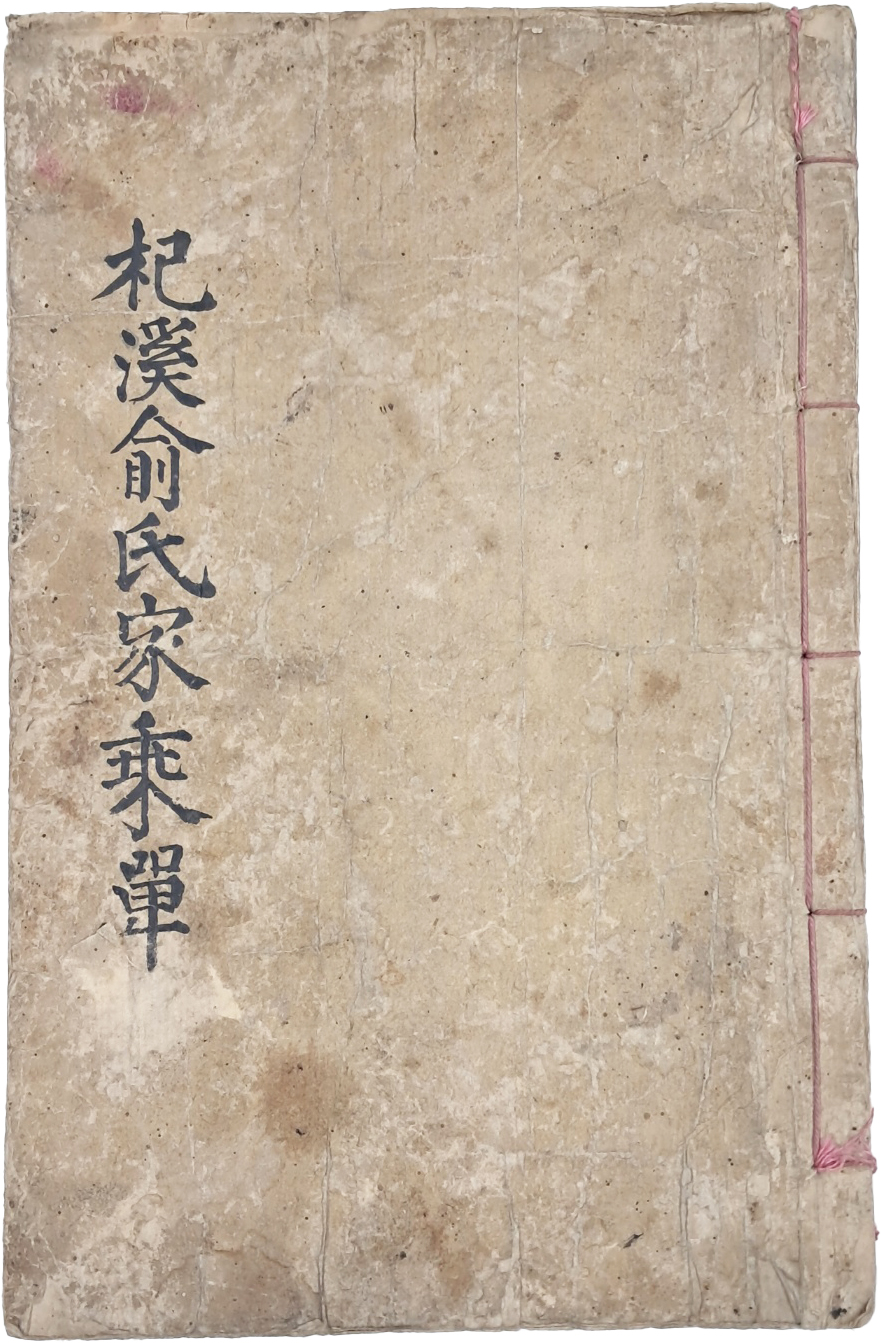 杞溪俞氏家乘單